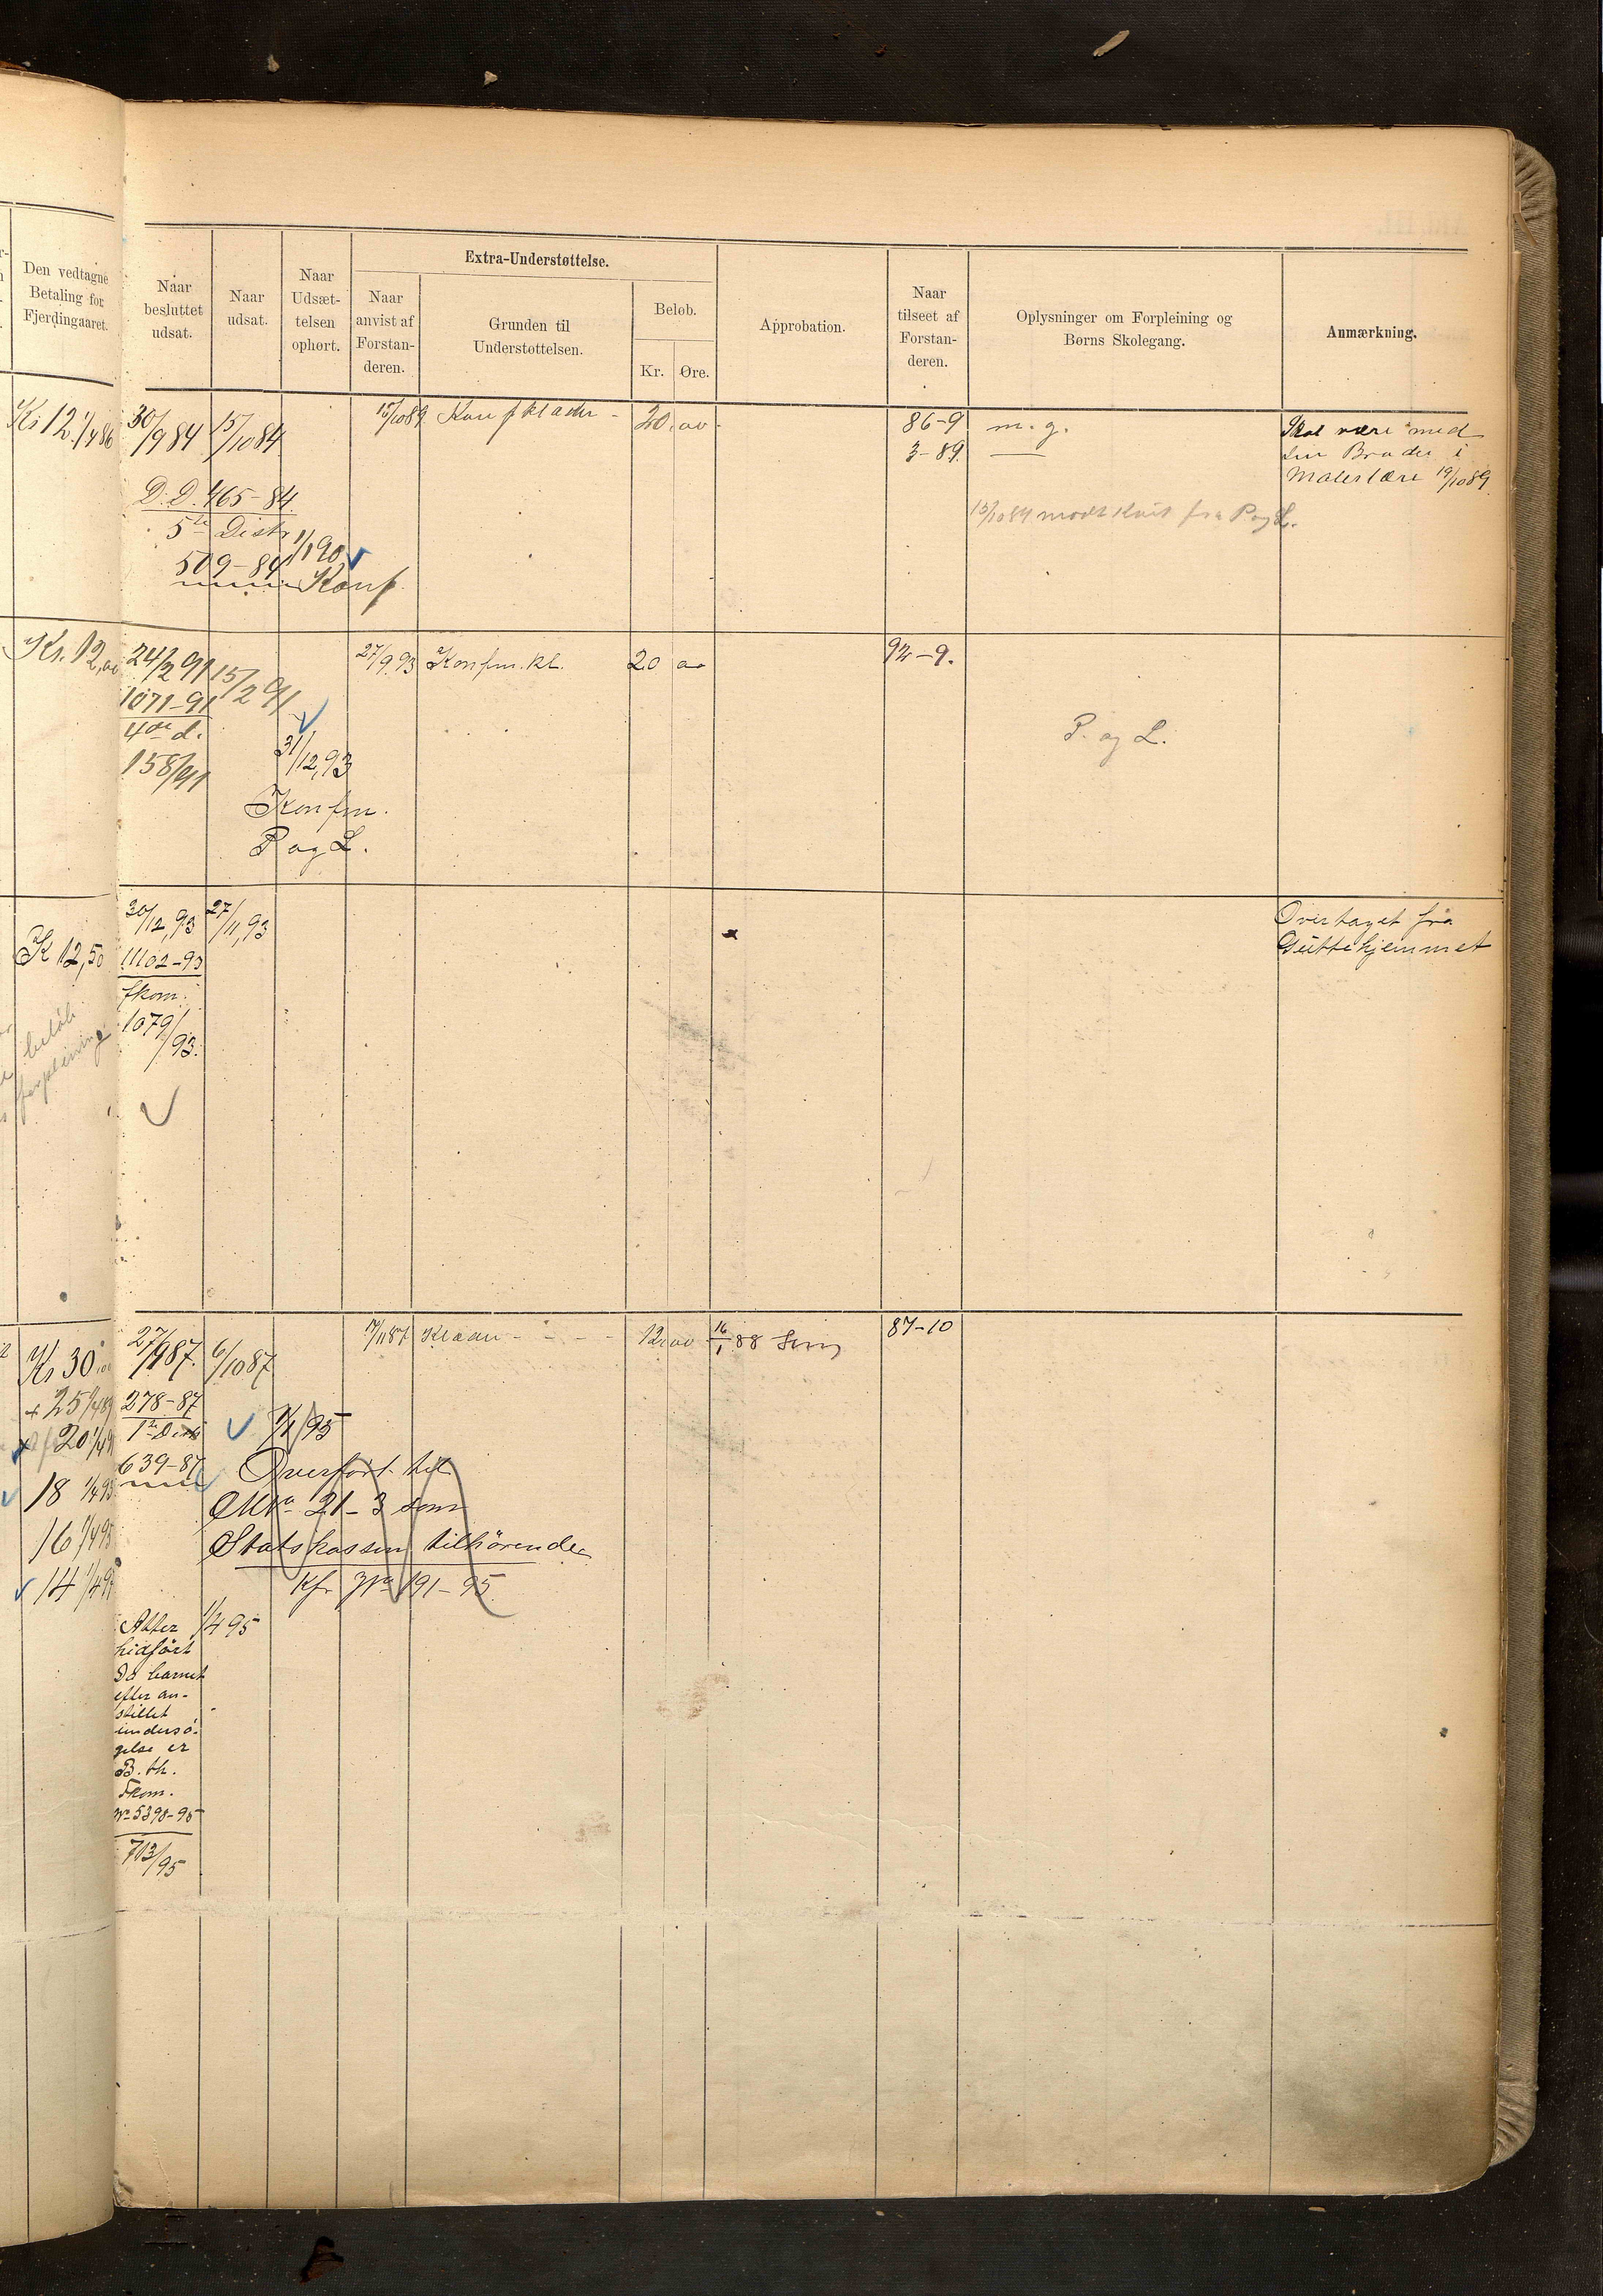 Den vedtagne
Betaling for
Fjerdingaaret.
Naar
besluttet
udsat.
Naar
udsat.
Naar
Udsæt-
telsen
ophørt.
Extra-Understøttelse.
Naar
anvist af
Forstan-
deren.
Grunden til
Understøttelsen.
Beløb.
Kr.
Øre.
Approbation.
Naar
tilseet af
Forstan-
deren.
Oplysninger om Forpleining og
Børns Skolegang.
Anmærkning.
Kr 12 1/4 86
30/9 84
15/10 84
D. D. 465-84
5te Distr
509-84
1/1 90
Konf.
15/10 89
Konf klæder -
20 00
86-9
3-89
m. g.
15/10 89 modt Kvit fra P og L.
Skal være med
sin Broder i
Malerlære 19/10 89
Kr. 12,00
24/2 91
15/2 91
1071-91
4de d.
158/91
31/12,93
Konfm.
P og L.
27/9 93
Konfm. kl.
20 00
92-9.
P. og L.
K 12,50
beløb
forpleining
30/12,93
27/11,93
11102-93
fkom.
1079/93.
Overtaget fra
Guttehjemmet
Kr 30,00
+ 25 1/4 89
20 1/4 91
18 1/4 93
16 1/4 95
14 1/4 97
27/9 87.
6/10 87
278-87
1te Distr
639-87
1/1 95
Overført til
No 21-3 som
Statskassen tilhörende
Kfr No 191-95
17/11 87
Klæder - - - -
12 00
16/1 88
87-10
Atter 1/4 95
hidført
Da barnet
efter an-
stillet
undersö-
gelse er
B. th.
Fkom.
No 5390-95
713/95